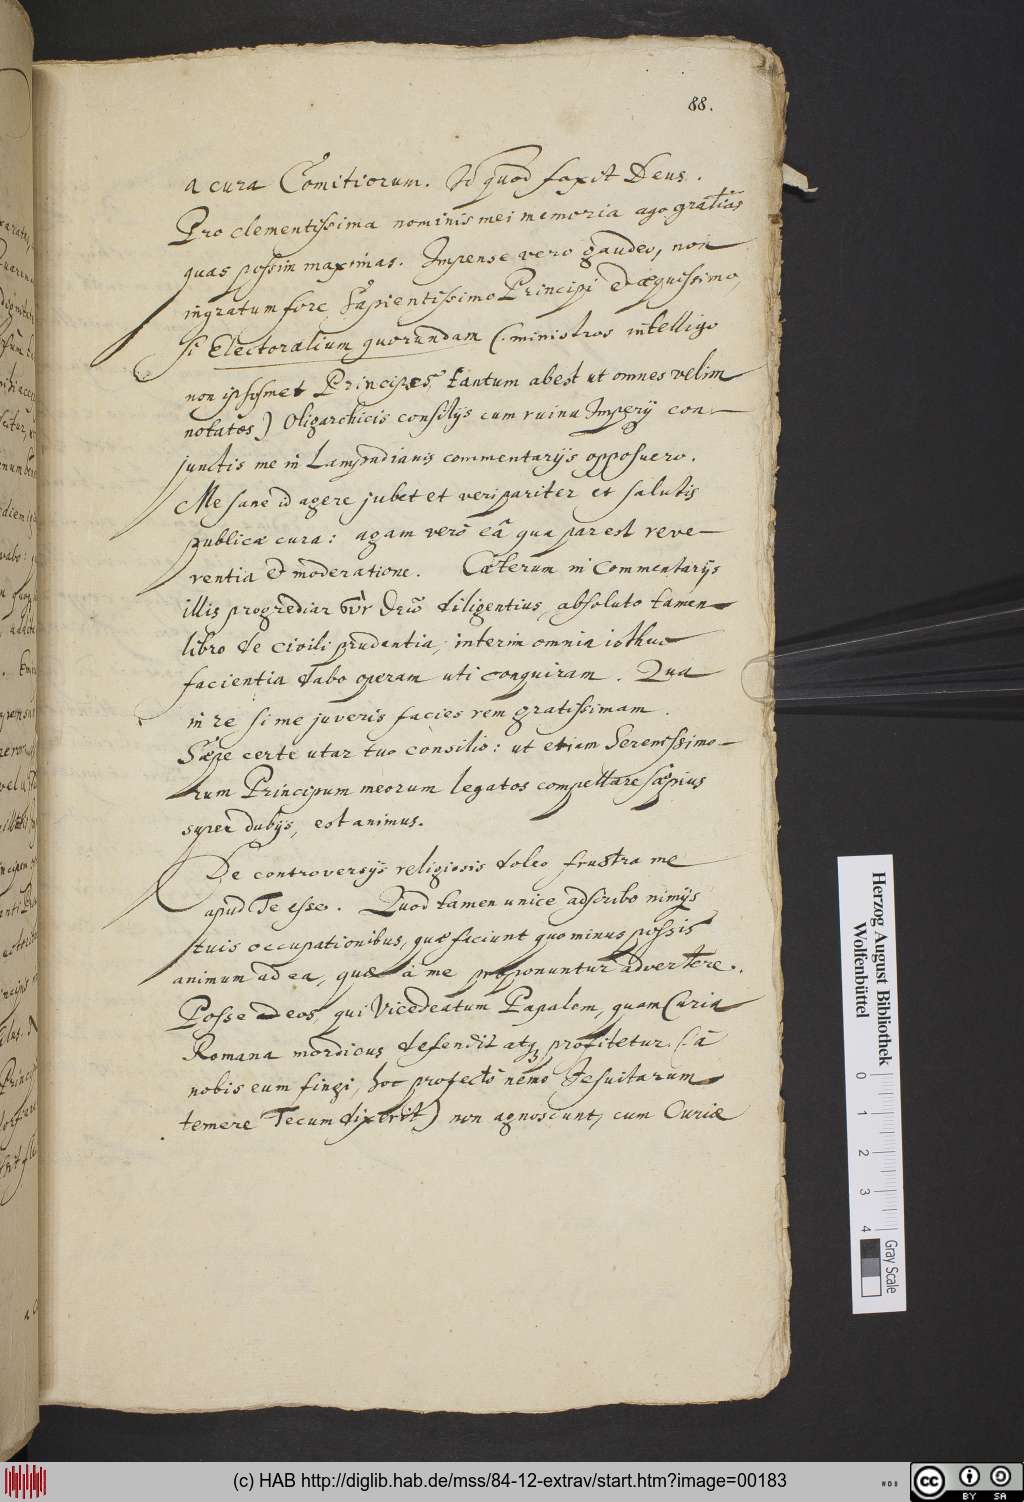 88.
a cura Comitiorum. Id quod faxit Deus.
Pro clementissima nominis mei memoria ago gratias
quas possim maximas. Impense vero gaudeo, non
ingratum fore Sapientissimo Principi et æquissimo,
si Electoralium quorundam (ministros intelligo
non ipsismet Principes, tantum abest ut omnes velim
notatos) Oligarchicis consilijs cum ruina Imperij con-
junctis me in Lampadianis commentarijs opposuero.
Me sane id agere jubet et veri pariter et salutis
publicæ cura: agam vero eâ qua par est reve-
rentia et moderatione. Cæterum in Commentarijs
illis progrediar diligentius, absoluto tamen
libro de civili prudentia, interim omnia isthuc
facientia dabo operam uti conquiram. Qua
in re si me juveris facies rem gratissimam.
Sæpe certe utar tuo consilio: ut etiam Serenissimo-
rum Principum meorum legatos compellare sæpius
super dubijs, est animus.
De controversijs religiosis doleo frustra me
apud Te esse. Quod tamen unice adscribo nimijs
tuis occupationibus, quæ faciunt quo minus possis
animum ad ea, quæ à me proponuntur advertere.
Posse ad eos, qui Vicedeatum Papalem, quam Curia
Romana mordicus defendit atq profitetur (à
nobis eum fingi, hoc profecto nemo Jesuitarum
temere Tecum dixerit) non agnoscunt, cum Curiæ
Herzog August Bibliothek
Wolfenbüttel
0 1 2 3 4
Gray Scale
(c) HAB http://diglib.hab.de/mss/84-12-extrav/start.htm?image=00183
cc BY SA